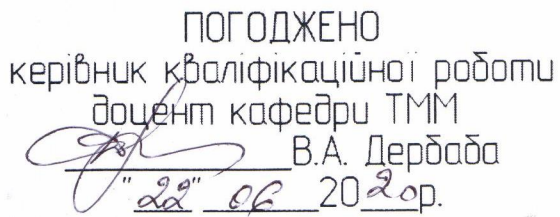 ПОГОДЖЕНО
керівник кваліфікаційної роботи
доцент кафедри ТММ
В.А. Дербаба
"22" 06 2020р.